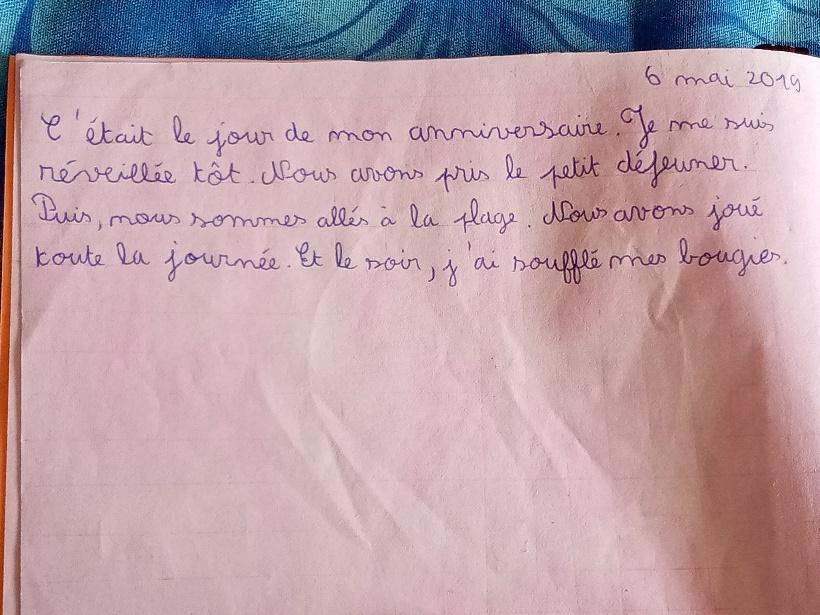 6 mai 2019
C'était le jour de mon anniversaire. Je me suis
réveillée tôt. Nous avons pris le petit déjeuner.
Puis, nous sommes allés à la plage. Nous avons joué
toute la journée. Et le soir, j'ai soufflé mes bougies.